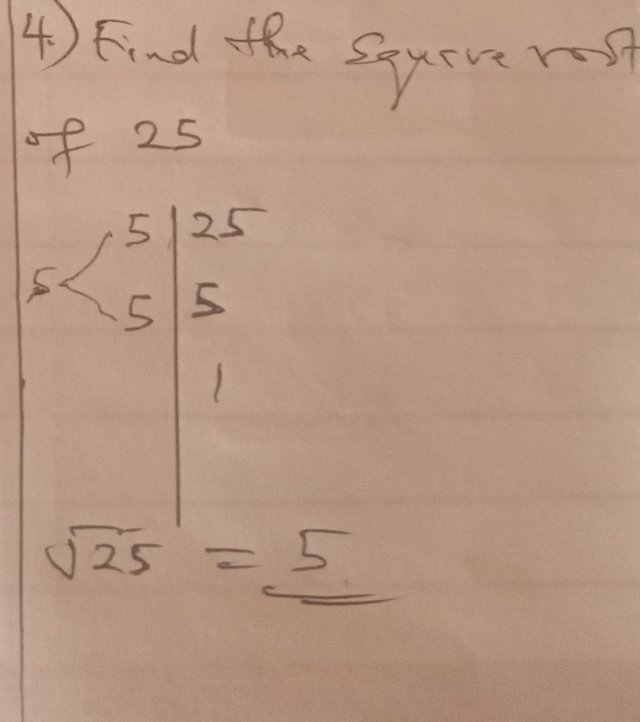 4.) Find the square root
of 25
5 | 25
5 < 5 | 5
1
√25 = 5